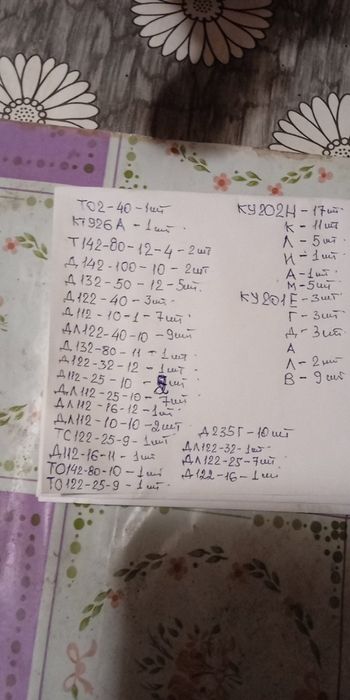 ТО2-40-1шт
КТ926А-1шт.
Т142-80-12-4-2шт
Д142-100-10-2шт
Д132-50-12-5шт.
Д122-40-3шт.
Д112-10-1-7шт.
ДЛ122-40-10-9шт
Д132-80-11-1шт.
Д122-32-12-1шт.
Д112-25-10-шт
ДЛ112-25-10-7шт
ДЛ112-16-12-1шт.
ДЛ112-10-10-2шт
ТС122-25-9-1шт.
Д112-16-11-1шт
ТО142-80-10-1шт
ТО122-25-9-1шт.
КУ202Н-17шт.
К-11шт
Л-5шт
И-1шт
А-1шт.
М-5шт
КУ201Е-3шт
Г-3шт
Д-3шт
А
Л-2шт
В-9шт
Д235Г-10шт
ДЛ122-32-1шт.
ДЛ122-25-7шт.
Д122-16-1шт